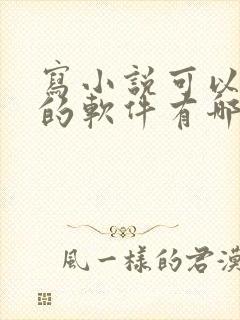 寫小說可以
的軟件有哪
風一樣的君漠